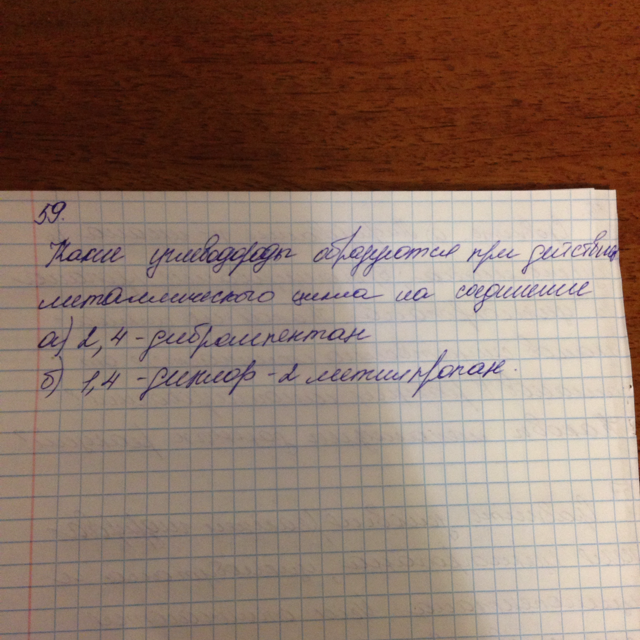 59.
Какие углеводороды образуются при действии
металлического цинка на соединение
а) 2,4-дибромпентан
б) 1,4-дихлор-2 метилпропан.